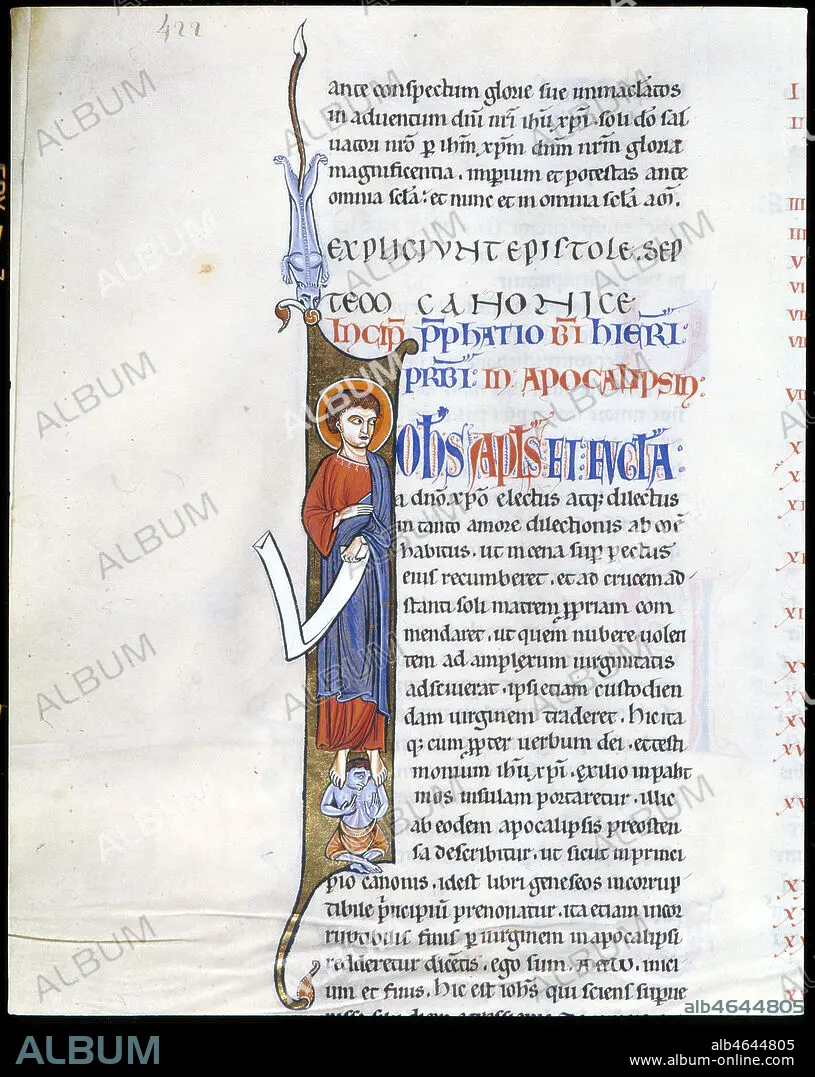 422
ante conspectum glorie sue inmaclatos
in adventum dni nri ihu xpi. soli do sal
vatori nro p ihm xpm dnm nrm gloria
magnificentia. imperium et potestas ante
omnia scla: et nunc et in omnia scla. am.
EXPLICIVNT EPISTOLE. SEP
TEM CANONICE
INCIP PPHATIO BI HIERI:
PRBI: IN APOCALIPSIN:
OHS APLS ET EVGTA:
a dno. xpo electus atq; dilectus
in tanto amore dilectionis ab eo
habitus. ut in cena sup pectus
eius recumberet. et ad crucem ad
stanti soli matrem ppriam com
mendaret. ut quem nubere volen
tem ad amplexum virginitatis
adsciverat. ipsi etiam custodien
dam virginem traderet. hic ita
q; cum ppter verbum dei. et testi
monium ihu xpi. exilio in path
mos insulam portaretur. illic
ab eodem apocalipsis preosten
sa describitur. ut sicut in princi
pio canonis. idest libri geneseos incorrup
tibile principiu prenotatur. ita etiam incor
ruptibilis finis p virginem in apocalipsi
redderetur dicetis. ego sum. A et ω. inici
um et finis. hic est iohs qui sciens supue
I
II
III
V
VI
X
ALBUM
alb4644805
ALBUM
alb4644805
www.album-online.com